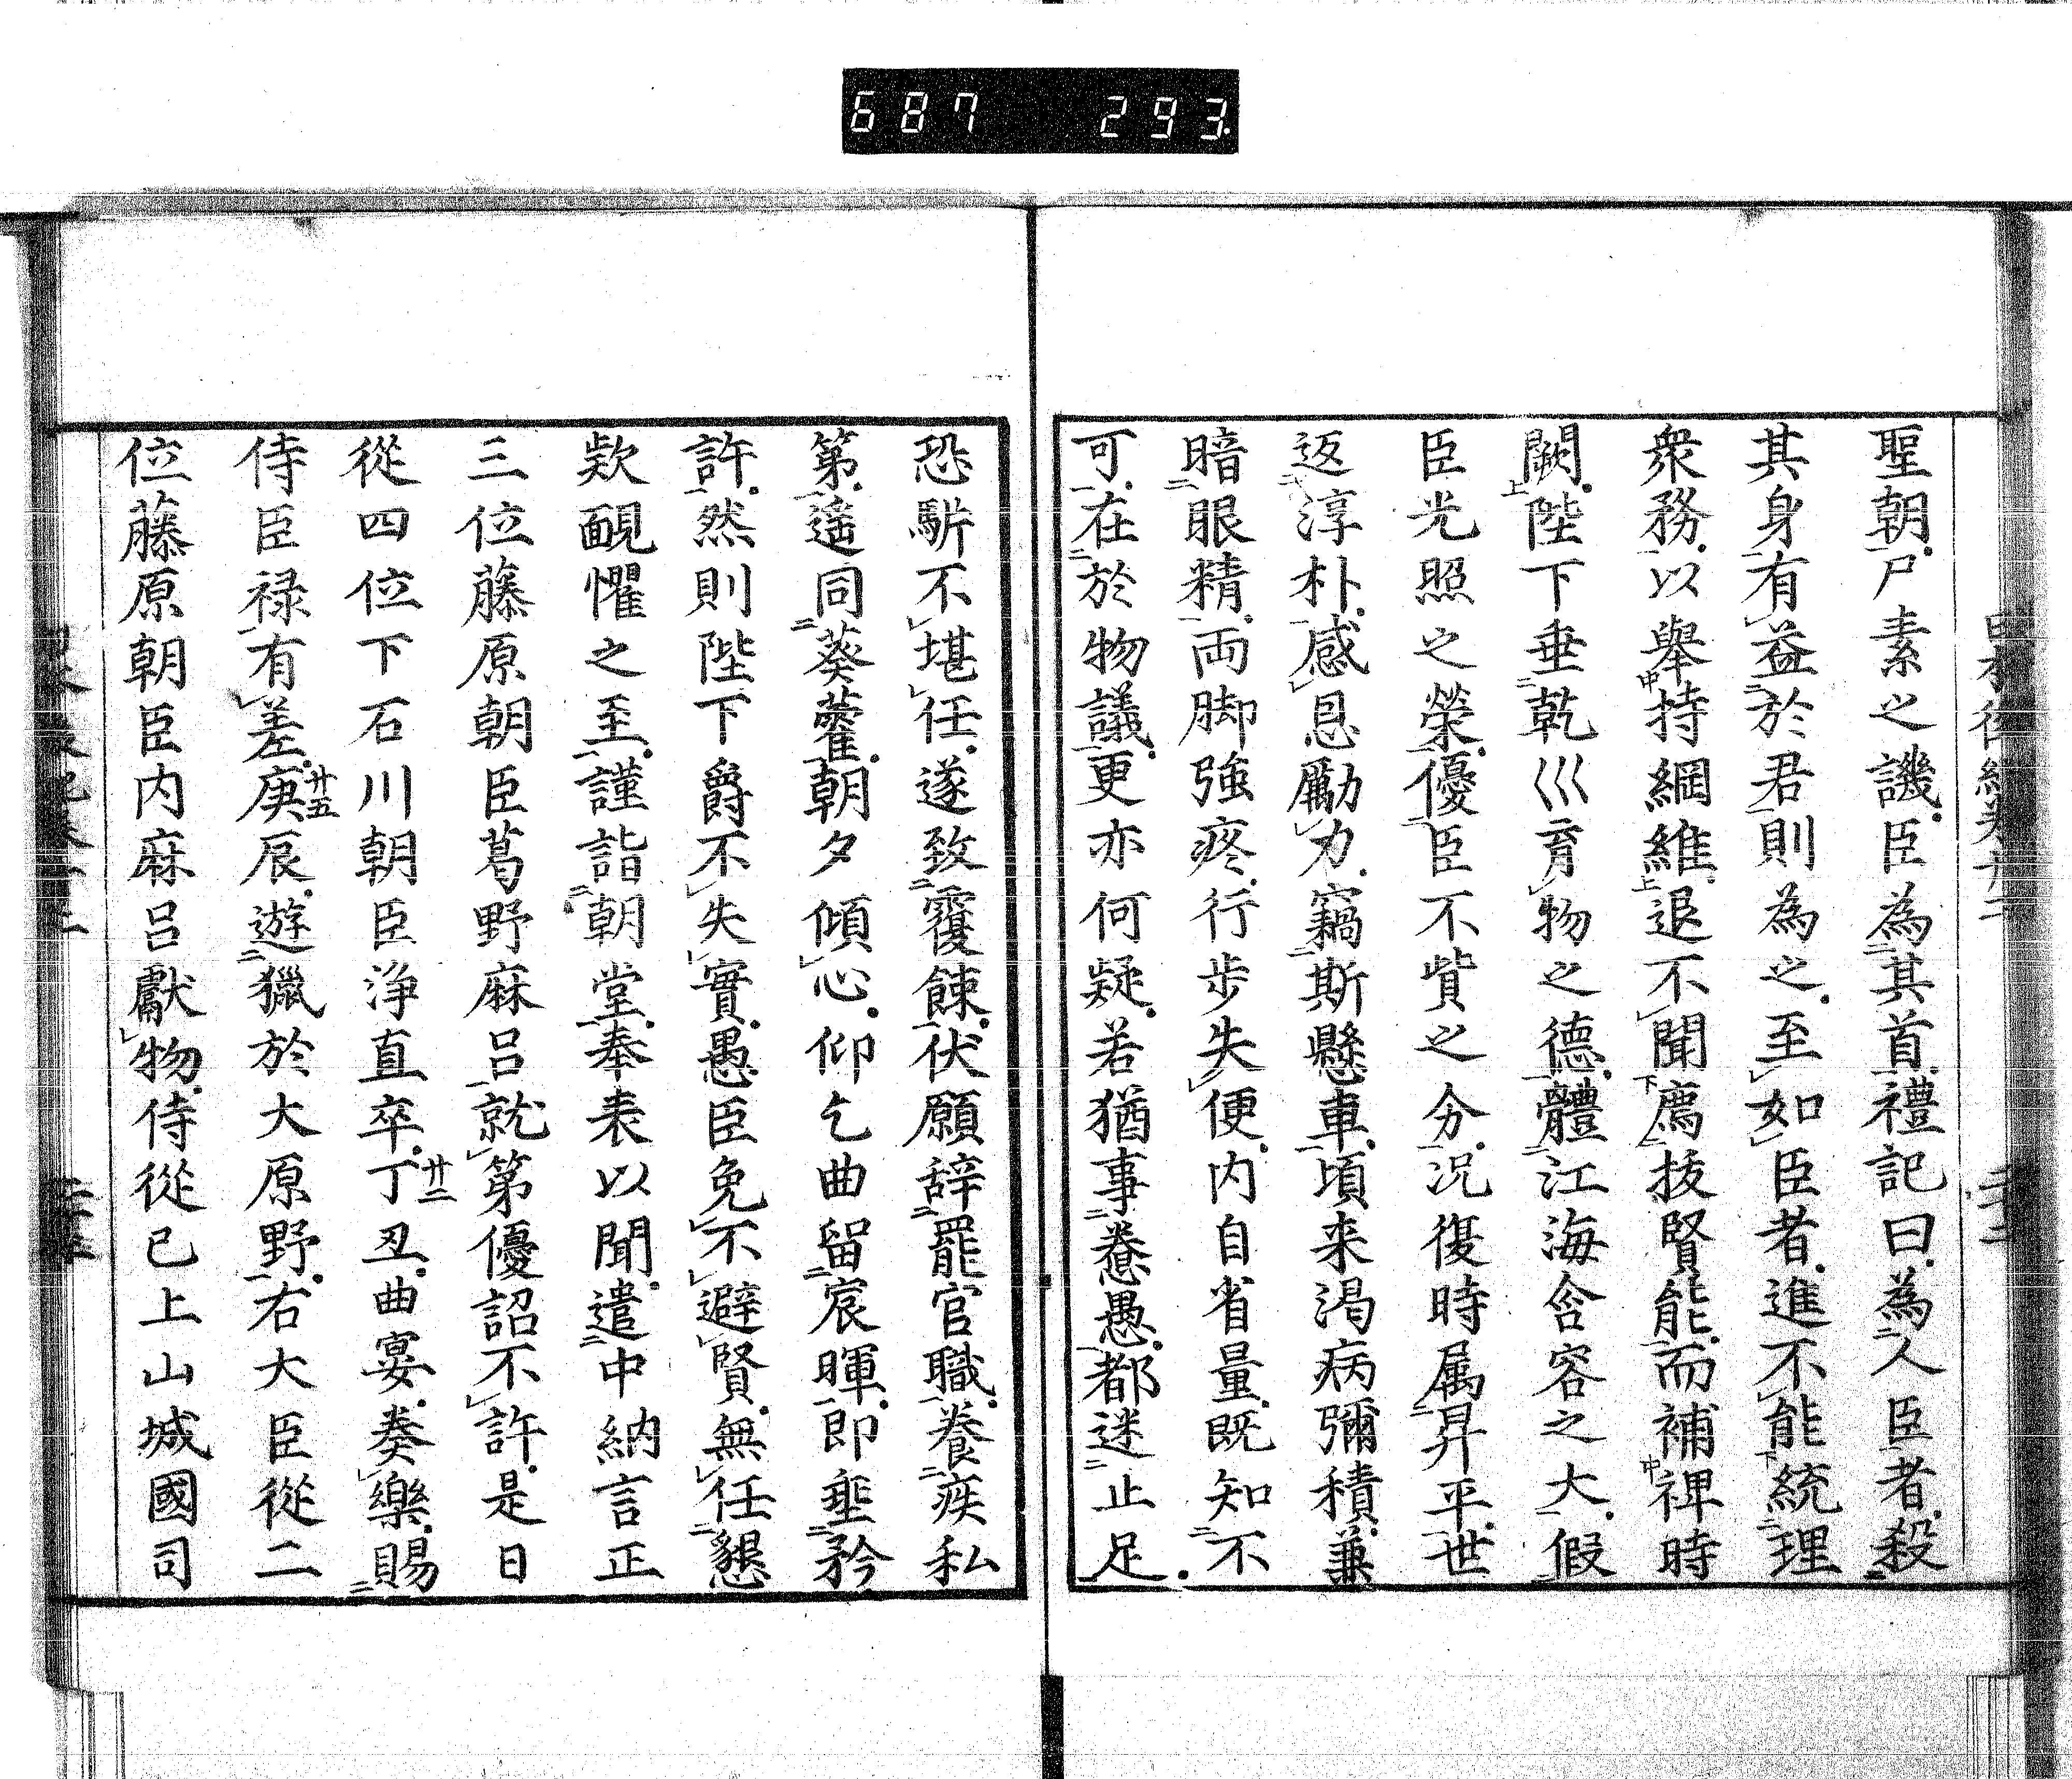 687 293
聖朝尸素之譏臣為其首禮記曰為人臣者殺
其身有益於君則為之至如臣者進不能統理
衆務以舉持綱維退不聞薦抜賢能而補裨時
闕陛下垂乾巛育物之德體江海含容之大假
臣光照之榮優臣不貲之分況復時属昇平世
返淳朴感恩勵力竊斯懸車頃来渇病彌積兼
暗眼精両脚強疼行歩失便内自省量既知不
可在於物議更亦何疑若猶事惷愚都迷止足
恐斯不堪任遂致覆餗伏願辞罷官職養疾私
第遥同葵藿朝夕傾心仰乞曲留宸暉即垂矜
許然則陛下爵不失實愚臣免不避賢無任懇
欵靦懼之至謹詣朝堂奉表以聞遣中納言正
三位藤原朝臣葛野麻呂就第優詔不許是日
從四位下石川朝臣浄直卒丁丑廿二曲宴奏樂賜
侍臣禄有差庚辰廿五遊獵於大原野右大臣從二
位藤原朝臣内麻呂獻物侍從已上山城國司